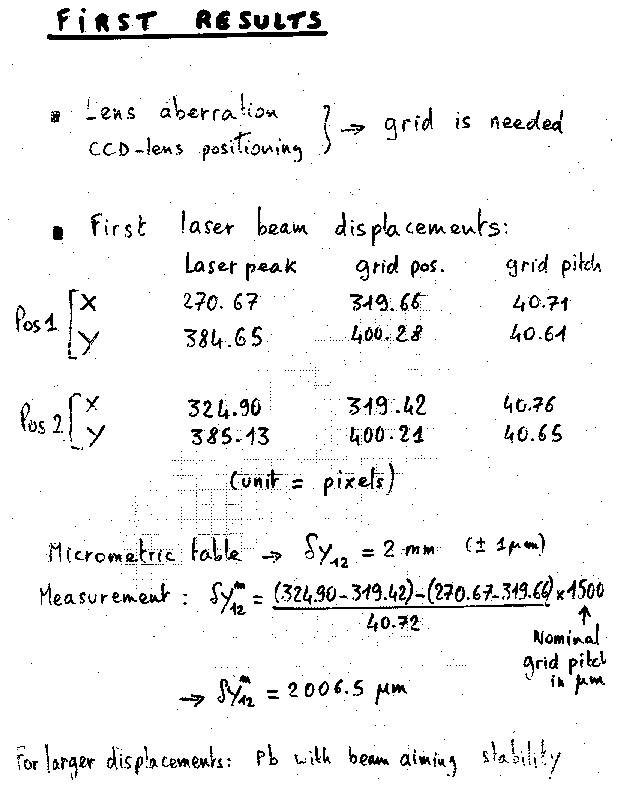 FIRST RESULTS
Lens aberration
CCD-lens positioning } → grid is needed
First laser beam displacements:
Laser peak grid pos. grid pitch
Pos 1 [ X 270.67 319.66 40.71
Y 384.65 400.28 40.61
Pos 2 [ X 324.90 319.42 40.76
Y 385.13 400.21 40.65
(unit = pixels)
Micrometric table → δY12 = 2 mm (± 1 μm)
Measurement : δY12^m = (324.90-319.42)-(270.67-319.66) × 1500
40.72
Nominal
grid pitch
in μm
→ δY12^m = 2006.5 μm
For larger displacements: Pb with beam aiming stability